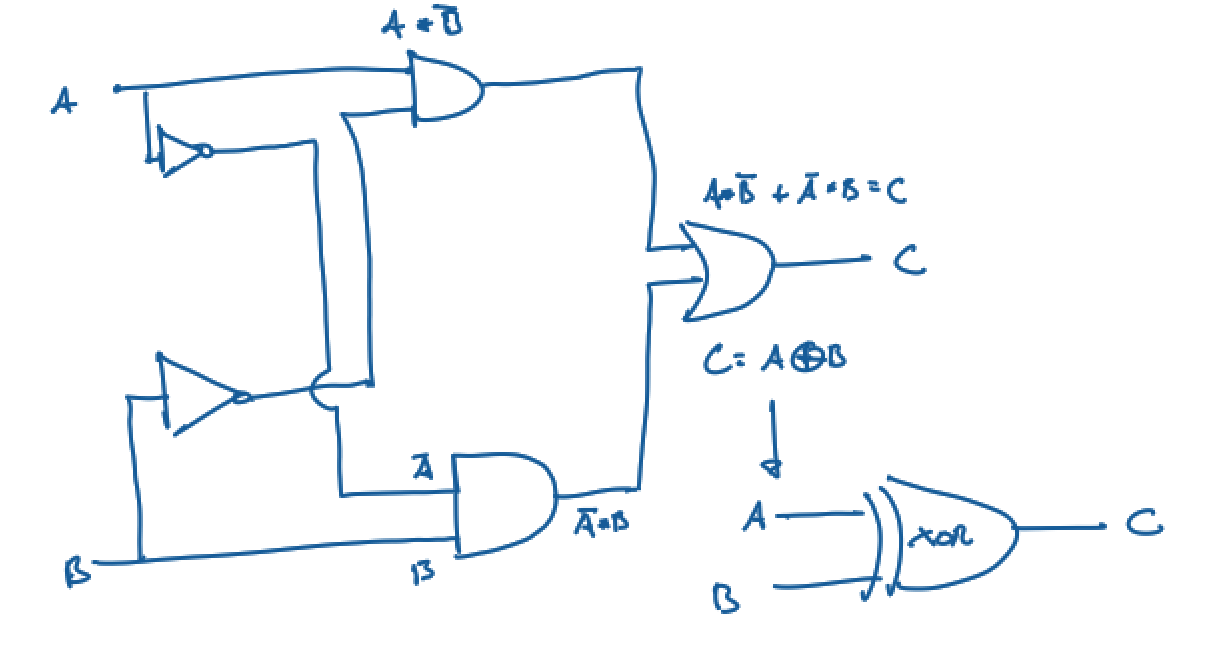 A • B̅
A
A•B̅ + A̅•B = C
C
C = A ⊕ B
A̅
A̅•B
B
B
A
XOR
C
B